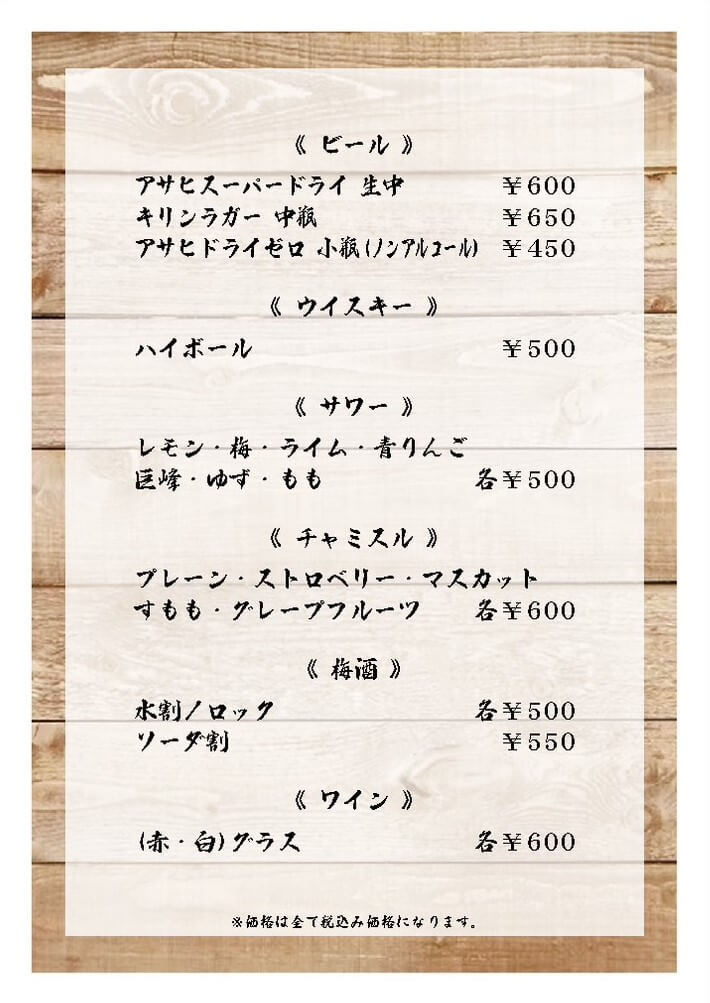 《 ビール 》
アサヒスーパードライ 生中 ￥600
キリンラガー 中瓶 ￥650
アサヒドライゼロ 小瓶(ノンアルコール) ￥450
《 ウイスキー 》
ハイボール ￥500
《 サワー 》
レモン・梅・ライム・青りんご
巨峰・ゆず・もも 各￥500
《 チャミスル 》
プレーン・ストロベリー・マスカット
すもも・グレープフルーツ 各￥600
《 梅酒 》
水割/ロック 各￥500
ソーダ割 ￥550
《 ワイン 》
(赤・白)グラス 各￥600
※価格は全て税込み価格になります。